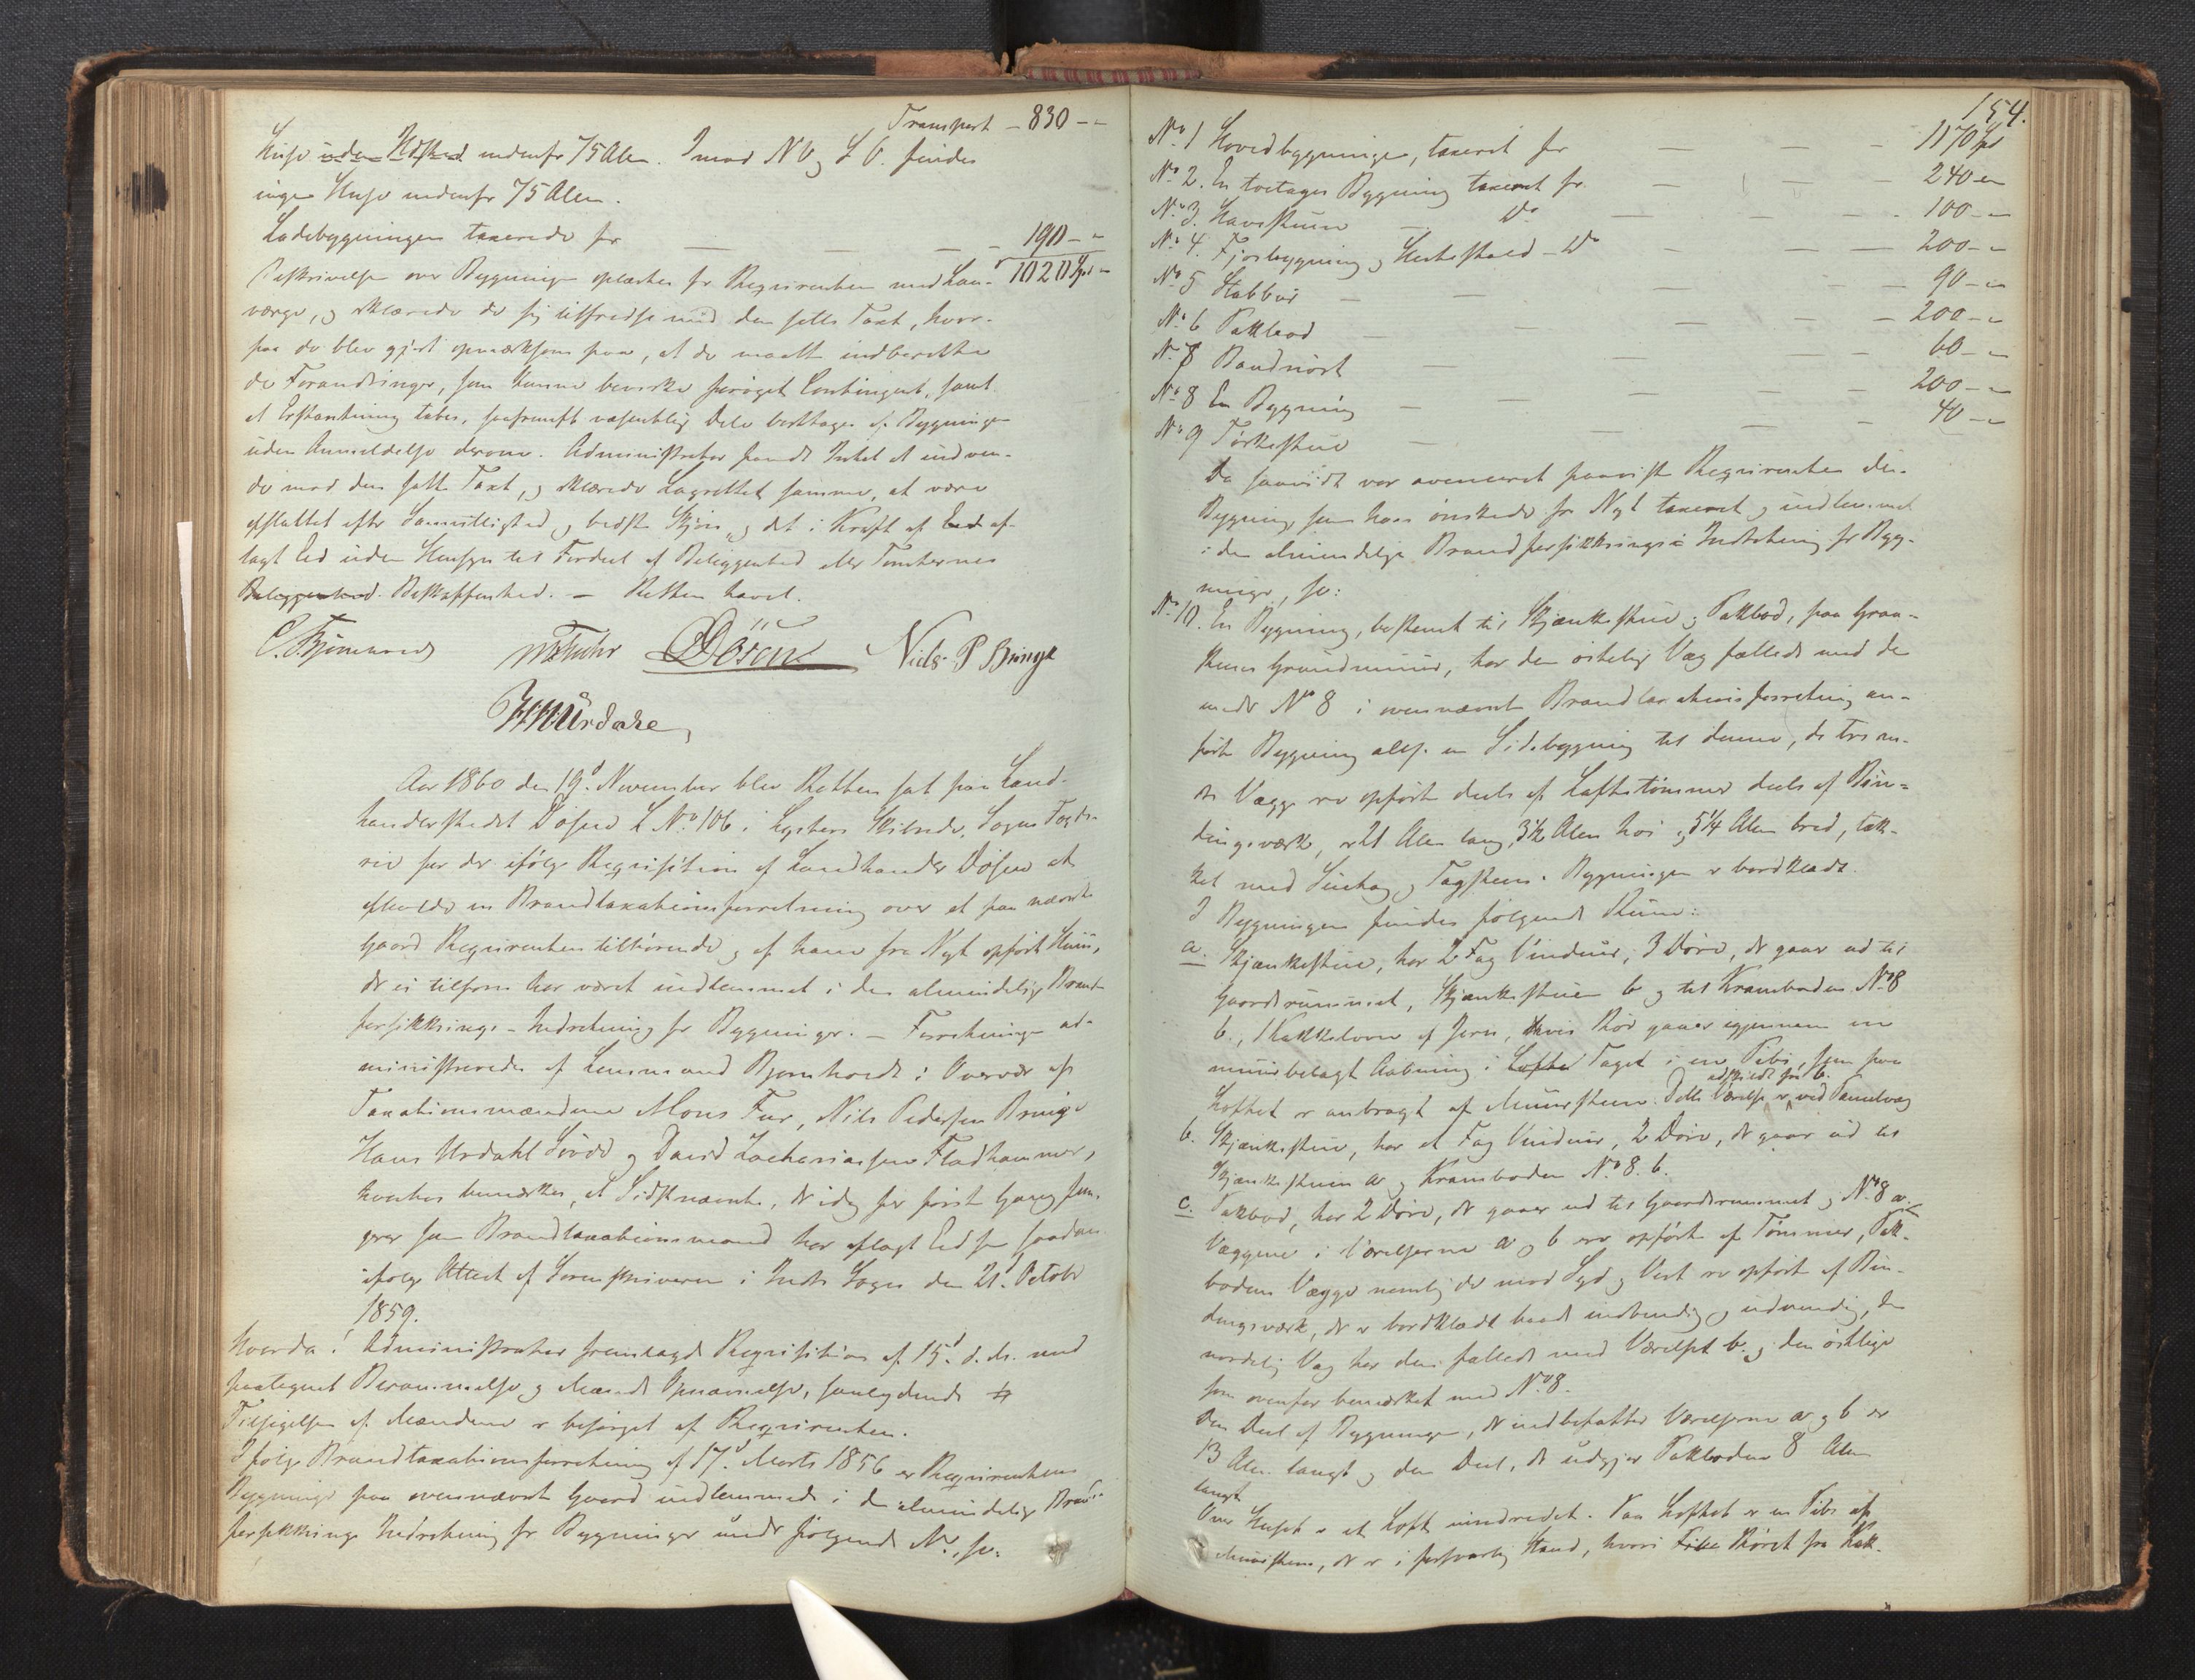 Transport – 830 – "
Huse uden Ildsted indenfor 75 Alen. Imod NV og SV. findes
ingen Huse indenfor 75 Alen.
Ladebygningen taxeredes for — — – 190 – "
1020 Spd "
Beskrivelsen over Bygningen oplæstes for Reqvirenten med Lau-
værge, og erklærede de sig tilfredse med den satte Taxt, hvor-
paa de blev gjort opmærksom paa, at de maatte indberette
de Forandringer, som kunne bevirke forøget Contingent, samt
at Erstatning tabes, saafremt væsentlige Dele borttages af Bygningen
uden Anmeldelse derom. Administrator fandt Intet at indven-
de mod den satte Taxt, og erklærede Lagrettet samme, at være
afsluttet efter Samvittighed og bedste Skjøn og det i Kraft af Eed af-
lagt Eed uden Hensyn til Fordeel af Beliggenhed eller Tomternes
Beliggenhed. Beskaffenhed. – Retten hævet.
C. Bjørnhoved M Fuhr Døsen Niels P Bringe
HMUrdahl
Aar 1860 den 19d. November blev Retten sat paa Land-
handlerstedet Døsen L No. 106 i Lysters Skibrede, Sogns Fogde-
rie for der ifølge Reqvisition af Landhandler Døsen at
afholde en Brandtaxationsforretning over et paa nævnte
Gaard Reqvirenten tilhørende og af ham fra Nyt opført Huus,
der ei tilforn har været indlemmet i den almindelige Brand-
forsikkrings-Indretning for Bygninger. – Forretningen ad-
ministreredes af Lensmand Bjørnhoved i Overvær af
Taxationsmændene Mons Fur, Nils Pedersen Bringe
Hans Urdahl og David Zachariassen Fladhammer,
hvorhos bemærkes, at Sidstnævnte, der idag for første Gang fun-
gerer som Brandtaxationsmand har aflagt Eed som saadan
ifølge Attest af Sorenskriveren i Indre Sogn den 21d. Octobr
1859.
Hvorda! Administrator fremlagde Reqvisition af 15d. d. M. med
paategnet Berammelse og Mænds Opnævnelse, saalydende #
Tilsigelsen af Mændene er besørget af Reqvirenten.
Ifølge Brandtaxationsforretning af 17d. Marts 1856 er Reqvirentens
Bygninger paa ovennævnte Gaard indlemmede i den almindelige Brand-
forsikkrings Indretning for Bygninger under følgende No., so:
154.
No. 1 Hovedbygningen, taxeret for — — — 1170 Spd
No. 2. En toetages Bygning taxeret for — — — 240 – "
No. 3. Havestuen — Do — — 100 – "
No. 4. Fjøsbygning og Hestestald – Do — — 200 – "
No. 5 Stabbur — — — 90 – "
No. 6 Pakbod — — — 200 – "
No. 7 Baadnøst — — — 60 – "
No. 8 En Bygning — — — 200 – "
No. 9 Tørkestue — — — 40 – "
Da saavidt var avanceret paaviste Reqvirenten den
Bygning som han ønskede for Nyt taxeret og indlemmet
i den almindelige Brandforsikkrings-Indretning for Byg-
ninger, so:
No. 10. En Bygning, bestemt til Skjænkestue og Pakbod, paa Graa-
steens Grundmuur, har den østelige Væg fælleds med de
under No 8 i ovennævnte Brandtaxationsforretning an-
førte Bygning altsaa en Sidebygning til denne, de tre an-
dre Vægge ere opførte deels af Laftetømmer deels af Bin-
dingsværk, er 21 Alen lang, 3½ Alen høi og 5¼ Alen bred, tæk-
ket med Sutag og Tagsteen. Bygningen er bordklædt.
I Bygningen findes følgende Rum:
a. Skjænkestue, har 2 Fag Vinduer, 3 Døre, der gaar ud til
Gaardsrummet, Skjænkestuen b og til Kramboden No. 8
b., 1 Kakkelovn af Jern, hvis Rør gaaer igjennem en
muurbelagt Aabning i Loftet Taget i en Pibe, som paa
Loftet er anbragt af Muursteen. Dette Værelse er adskildt fra b. ved Panelvæg
b. Skjænkestue, har et Fag Vinduer, 2 Døre, der gaar ud til
Skjænkestuen a og Kramboden No 8. b.
c. Pakbod, har 2 Døre, der gaaer ud til Gaardsrummet og No. 8 a.
Væggene i Værelserne a og b ere opførte af Tømmer, Pak-
bodens Vægge nemlig de mod Syd og Vest er opført af Bin-
dingsværk, der er bordklædt baade indvendig og udvendig, den
nordelige Væg har den fælleds med Værelset b. og den østlige
som ovenfor bemærket med No. 8.
Den Deel af Bygningen, der indbefatter Værelserne a og b er
13 Alen langt og den Deel, der udgjør Pakboden 8 Alen
langt
Over Huset er et Loft uindredet. Paa Loftet er en Pibe af
Muursteen, der er i forsvarlig Stand, hvori Røret fra Kak-